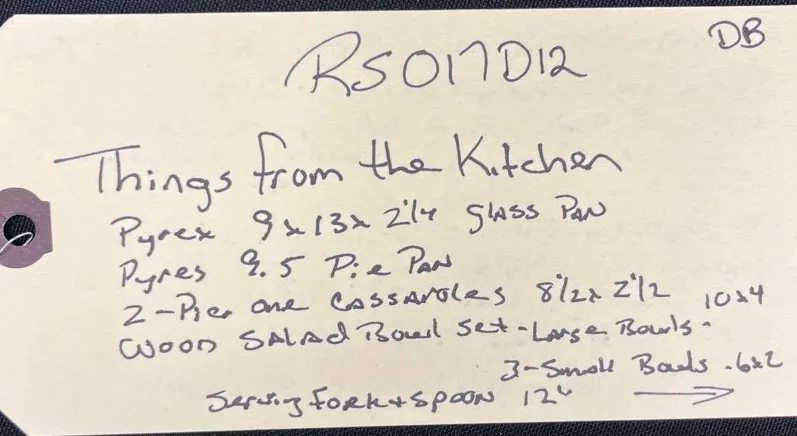 DB
RS017D12
Things from the Kitchen
Pyrex 9x13x 2 1/4 glass Pan
Pyres 9.5 Pie Pan
2-Pier one Cassaroles 8 1/2x 2 1/2
Wood Salad Bowl Set - Large Bowls - 10x4
3-Small Bowls . 6x2
Serving Fork + Spoon 12" →